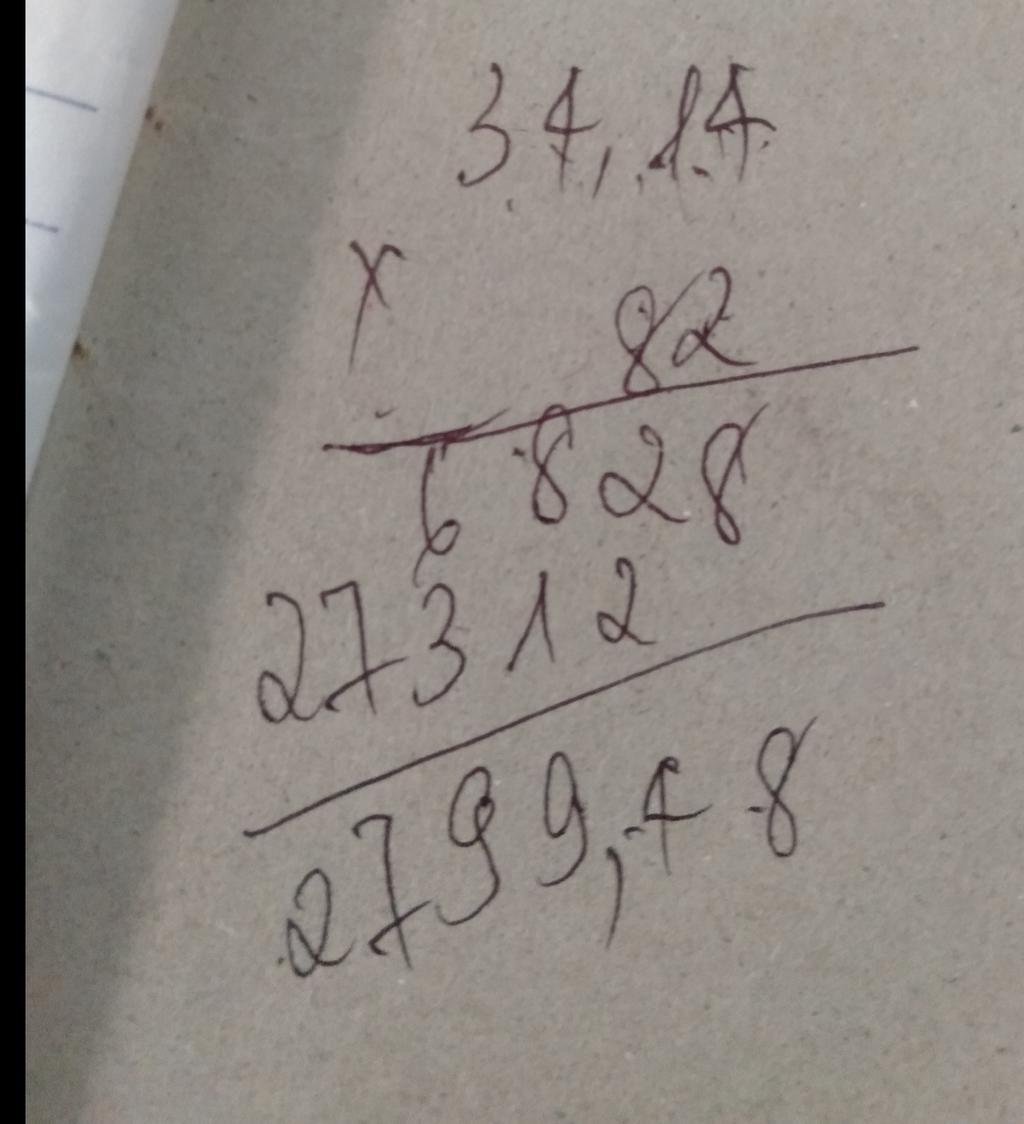 34,14
x
82
6828
27312
2799,48